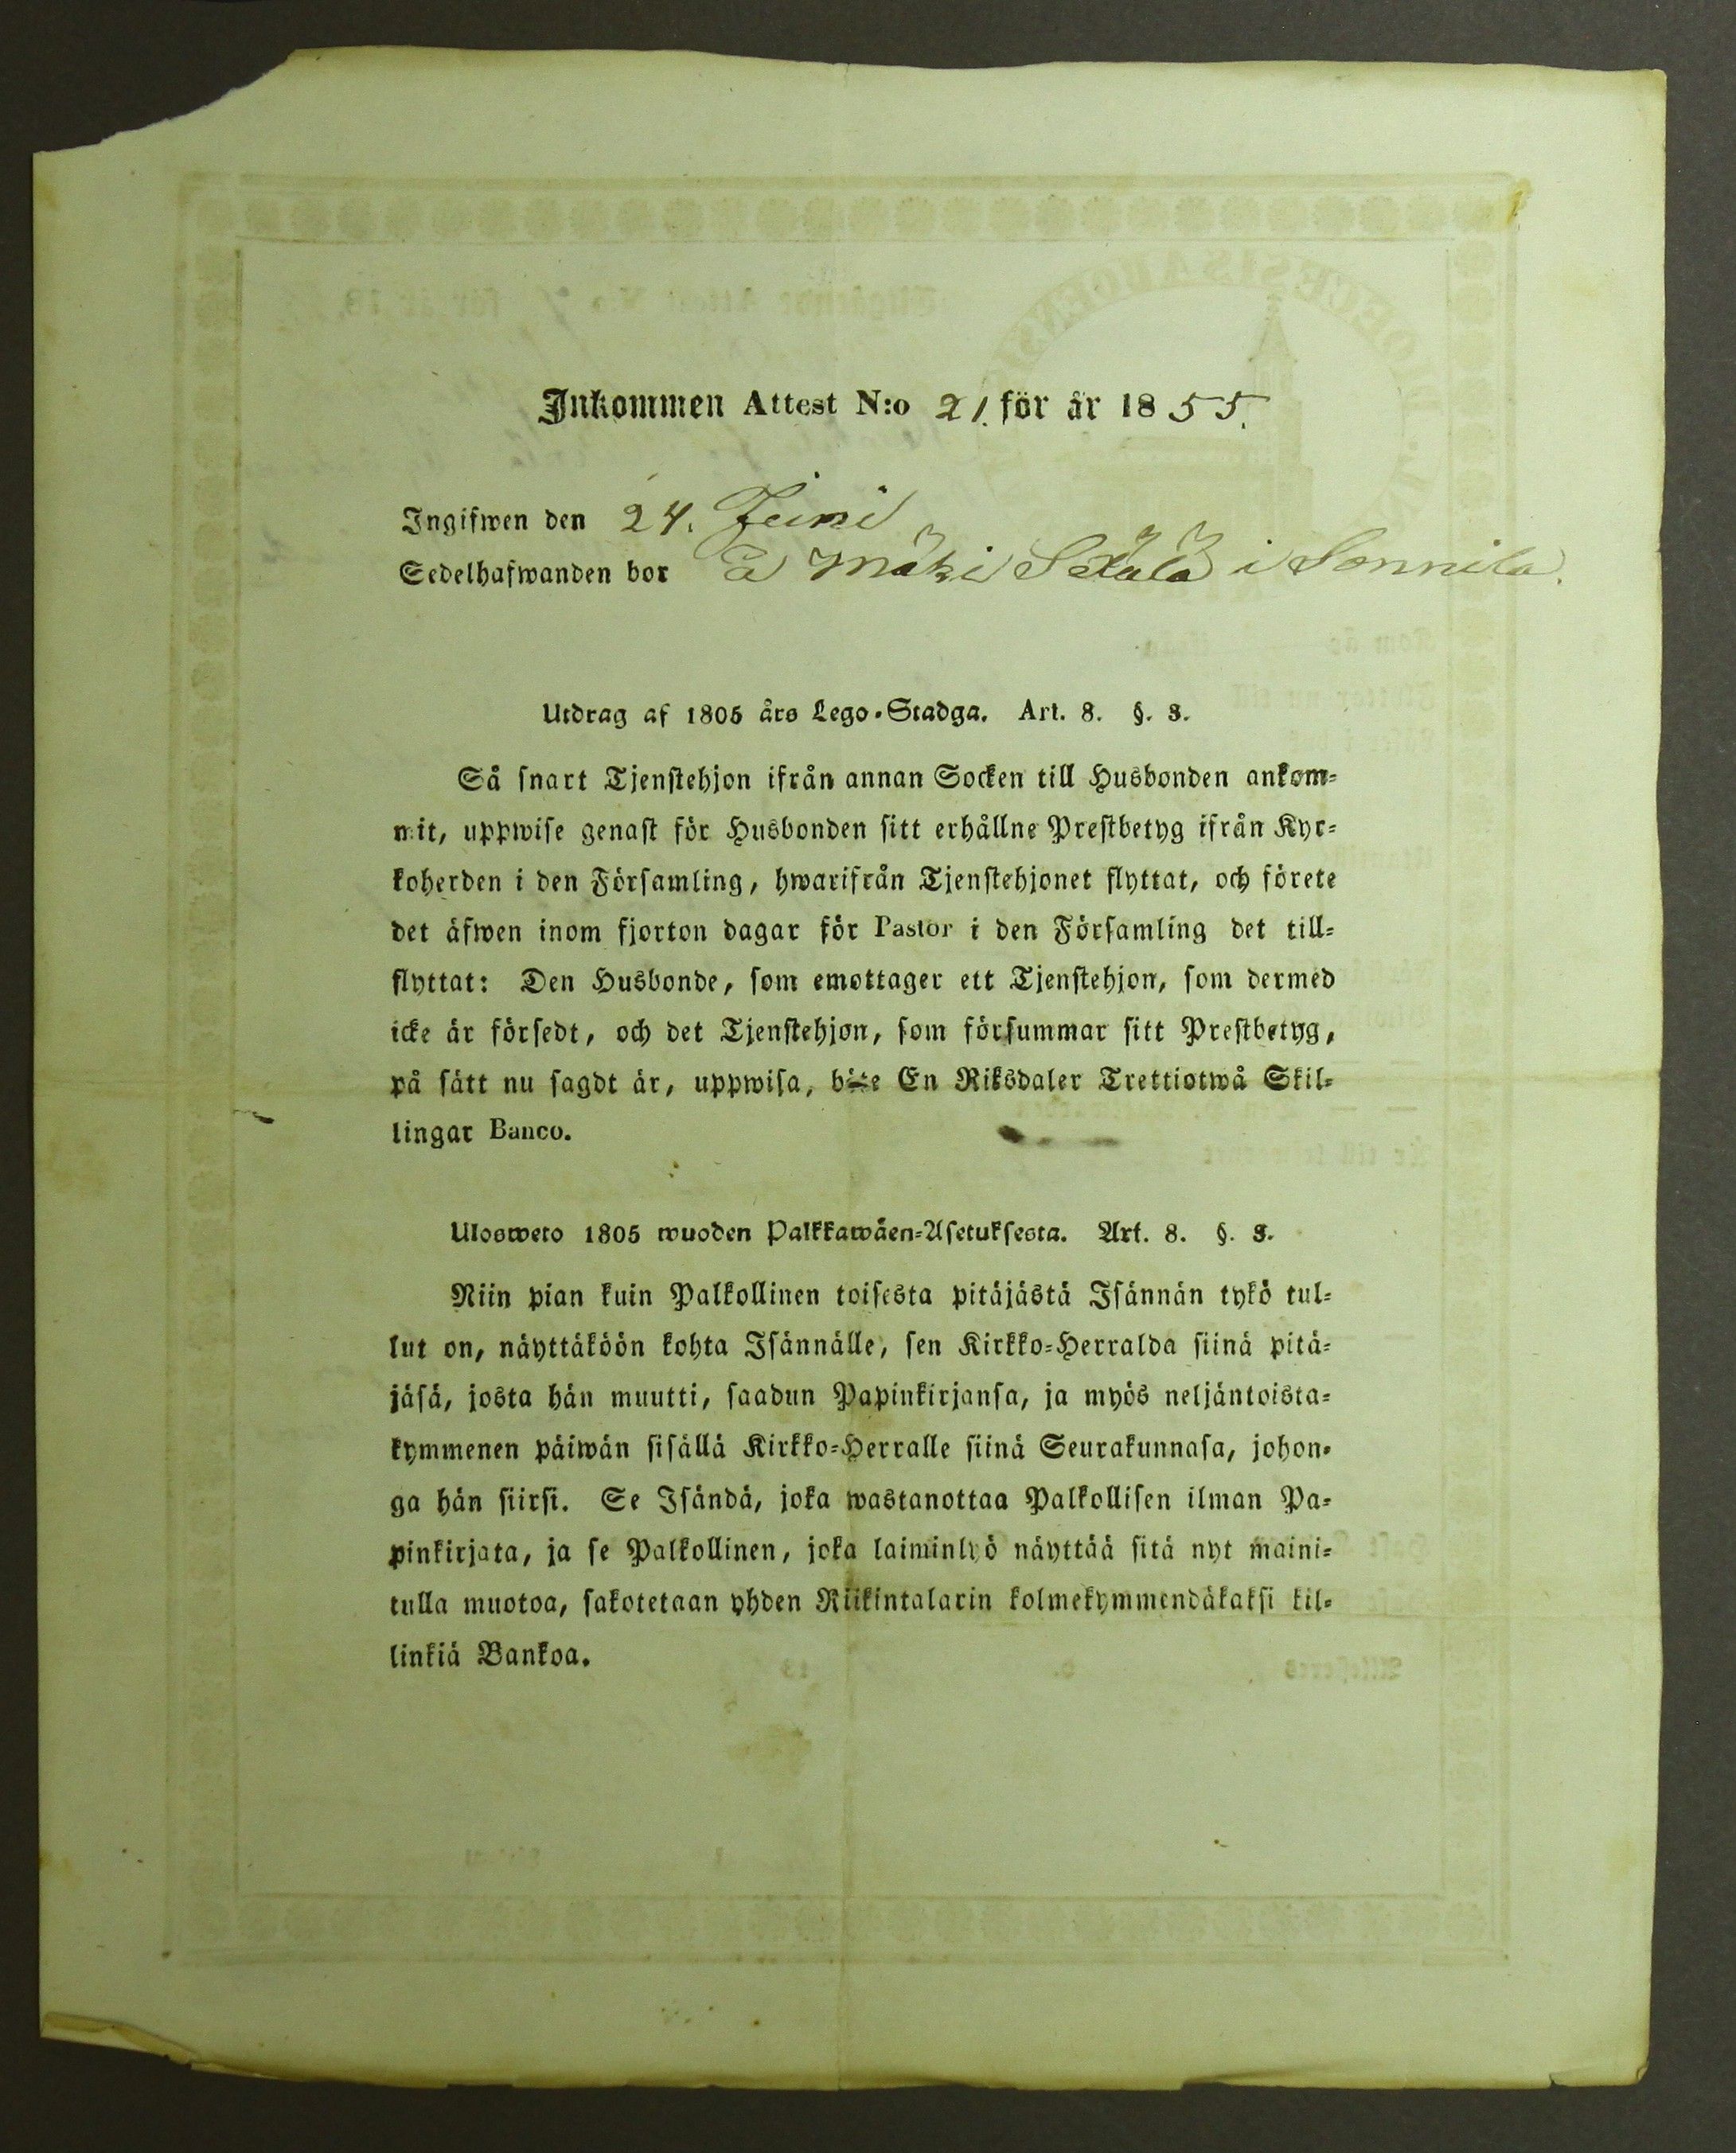 Inkommen Attest N:o 21. för år 1855.
Ingifwen den 24. Juni
Sedelhafwanden bor å Mäki i Sonnila.
Utdrag af 1805 års Lego-Stadga. Art. 8. §. 3.
Så snart Tjenstehjon ifrån annan Socken till Husbonden ankom-
mit, uppwise genast för Husbonden sitt erhållne Prestbetyg ifrån Kyr-
koherden i den Församling, hwarifrån Tjenstehjonet flyttat, och förete
det äfwen inom fjorton dagar för Pastor i den Församling det till-
flyttat: Den Husbonde, som emottager ett Tjenstehjon, som dermed
icke är försedt, och det Tjenstehjon, som försummar sitt Prestbetyg,
på sätt nu sagdt är, uppwisa, böte En Riksdaler Trettiotwå Skil-
lingar Banco.
Ulosweto 1805 wuoden Palkkawäen-Asetuksesta. Art. 8. §. 3.
Niin pian kuin Palkollinen toisesta pitäjästä Isännän tykö tul-
lut on, näyttäköön kohta Isännälle, sen Kirkko-Herralda siinä pitä-
jäsä, josta hän muutti, saadun Papinkirjansa, ja myös neljäntoista-
kymmenen päiwän sisällä Kirkko-Herralle siinä Seurakunnasa, johon-
ga hän siirsi. Se Isändä, joka wastanottaa Palkollisen ilman Pa-
pinkirjata, ja se Palkollinen, joka laiminlyö näyttää sitä nyt maini-
tulla muotoa, sakotetaan yhden Riikintalarin kolmekymmendäkaksi kil-
linkiä Bankoa.